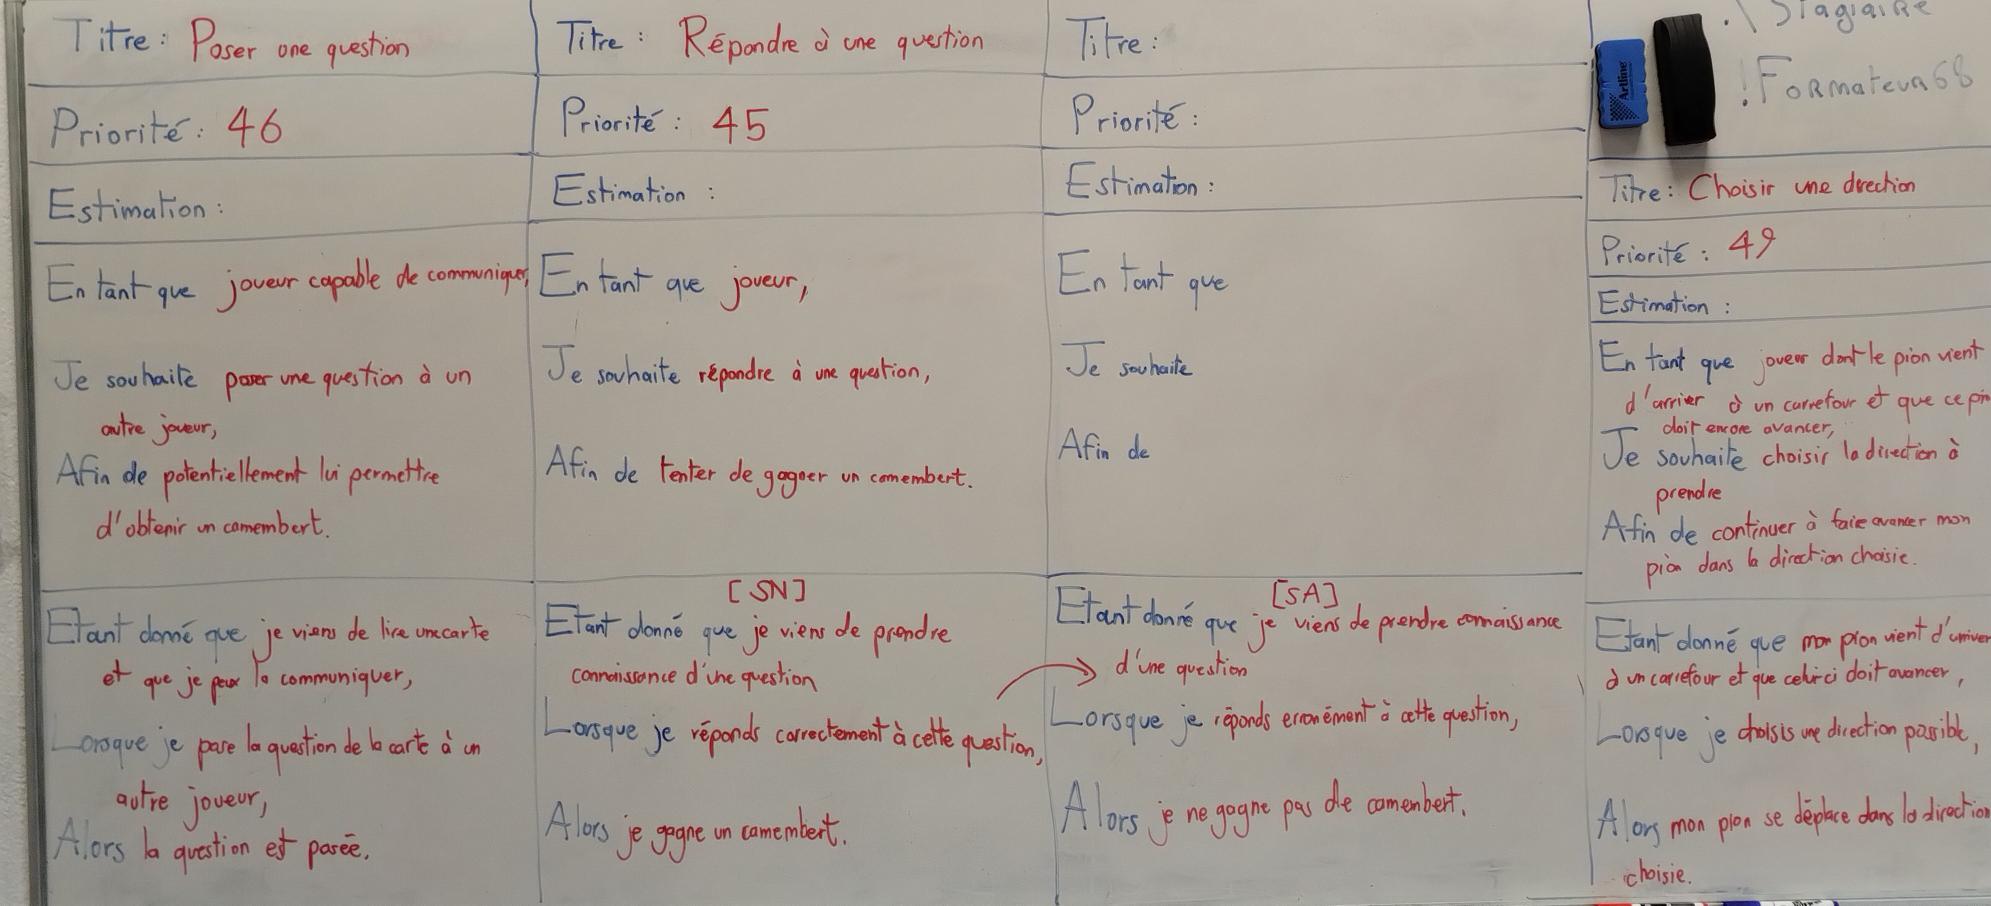 Titre: Poser une question
Priorité: 46
Estimation:
En tant que joueur capable de communiquer,
Je souhaite poser une question à un
autre joueur,
Afin de potentiellement lui permettre
d'obtenir un camembert.
Etant donné que je viens de lire une carte
et que je peux la communiquer,
Lorsque je pose la question de la carte à un
autre joueur,
Alors la question est posée.
Titre: Répondre à une question
Priorité: 45
Estimation:
En tant que joueur,
Je souhaite répondre à une question,
Afin de tenter de gagner un camembert.
[SN]
Etant donné que je viens de prendre
connaissance d'une question
Lorsque je réponds correctement à cette question,
Alors je gagne un camembert.
Titre:
Priorité:
Estimation:
En tant que
Je souhaite
Afin de
[SA]
Etant donné que je viens de prendre connaissance
d'une question
Lorsque je réponds erronément à cette question,
Alors je ne gagne pas de camembert.
.\Stagiaire
!Formateur68
Artline
Titre: Choisir une direction
Priorité: 49
Estimation:
En tant que joueur dont le pion vient
d'arriver à un carrefour et que ce
doit encore avancer,
Je souhaite choisir la direction à
prendre
Afin de continuer à faire avancer mon
pion dans la direction choisie.
Etant donné que mon pion vient d'arriver
à un carrefour et que celui-ci doit avancer,
Lorsque je choisis une direction possible,
Alors mon pion se déplace dans la direction
choisie.